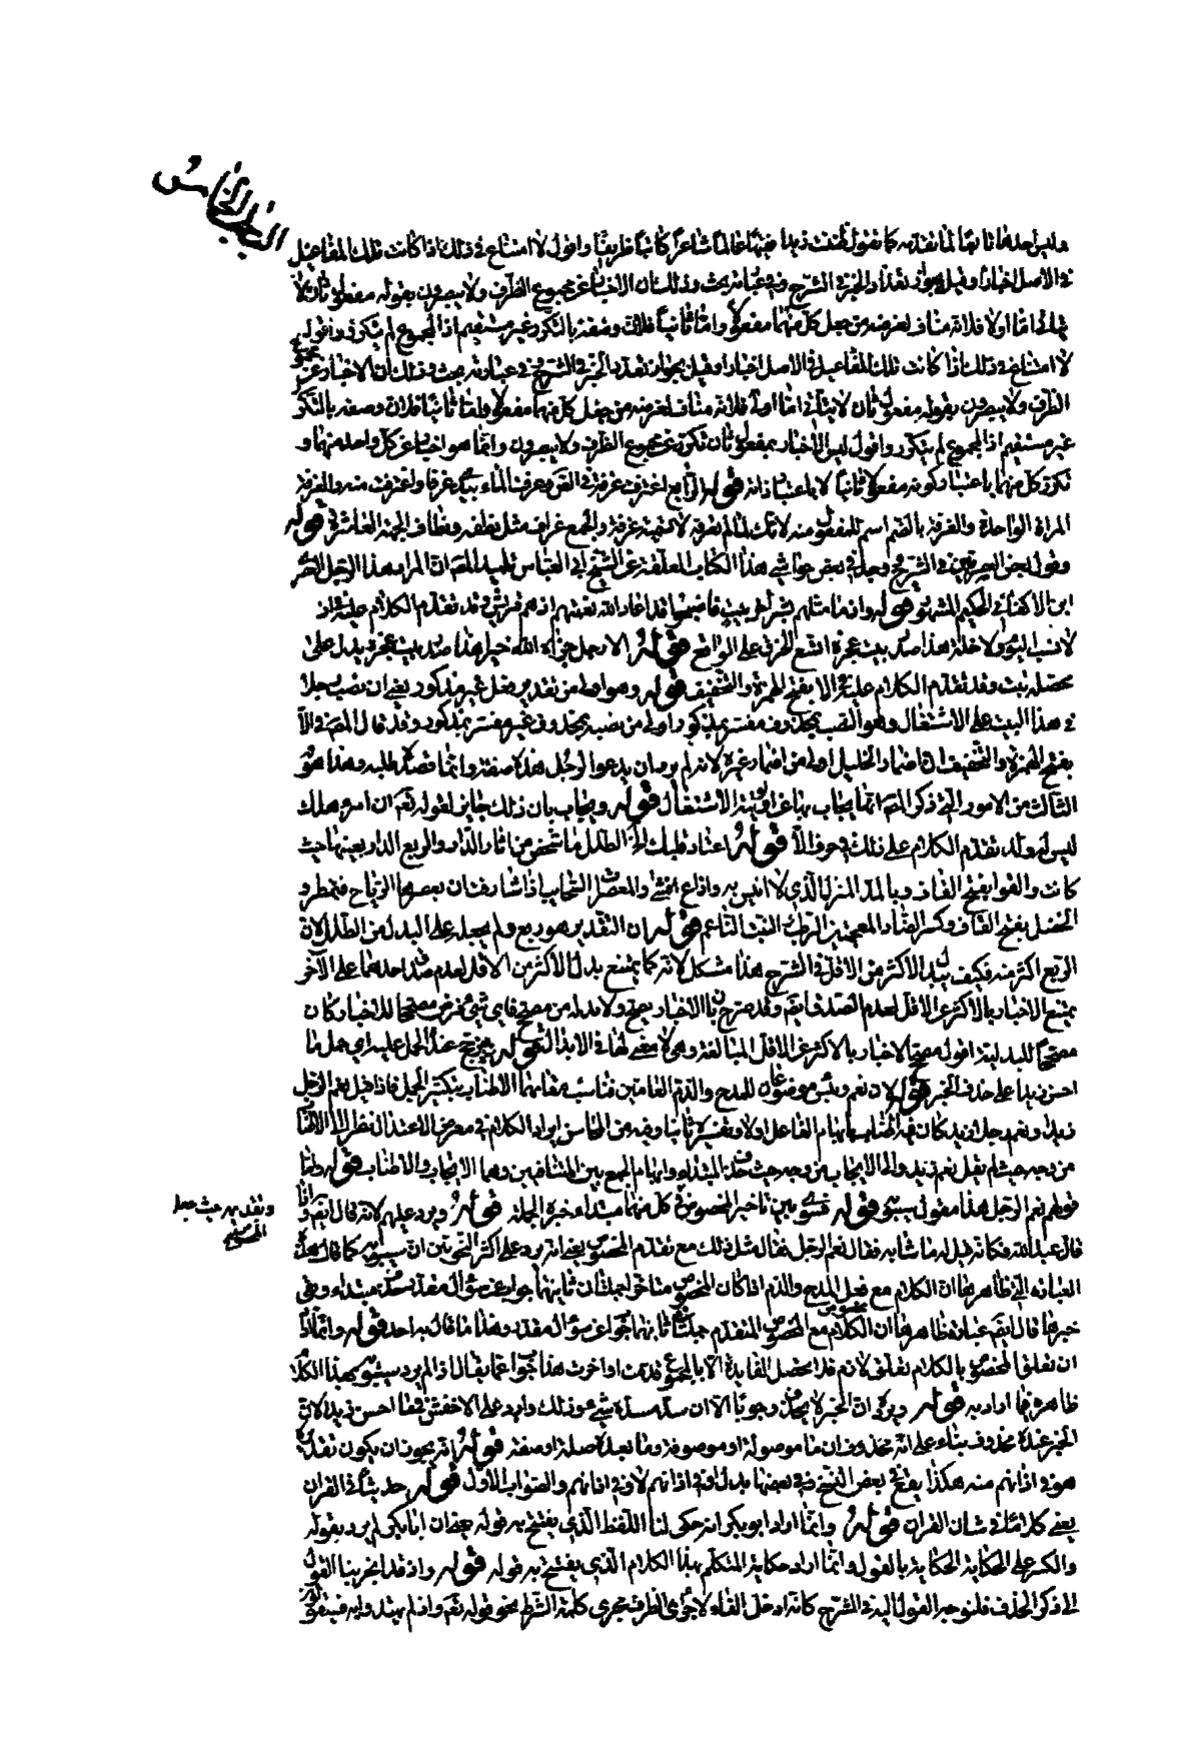 الباب الخامس
وليس احدها تابعا لما تقدمه كما تقول ظننت زيدا فقيها عالما شاعرا كاتبا ظريفا واقول لا امتناع في ذلك اذا كانت تلك المفاعيل
في الاصل اخبارا وقيل بجواز تعداد الخبر في الشرح وفي عبارته بحث وذلك ان الاخبار عن مجموع الظرف ولا يبصرون بقوله مفعول ثان لا
اما اولا فلانه مناف لغرضه من جعل كل منهما مفعولا واما ثانيا فلان وصفه بالتكرر غير مستقيم اذ المجموع لم يتكرر واقول
لا امتناع في ذلك اذا كانت تلك المفاعيل في الاصل اخبارا وقيل بجواز تعدد الخبر في الشرح في عبارته بحث وذلك ان الاخبار عن مجموع
الظرف ولا يبصرون بقوله مفعول ثان لا يتأتى اما اولا فلانه مناف لغرضه من جعل كل منهما مفعولا واما ثانيا فلان وصفه بالتكرر
غير مستقيم اذ المجموع لم يتكرر واقول ليس الاخبار بمفعول ثان تكرر عن مجموع الظرف ولا يبصرون وانما هو اخبار عن كل واحد منهما و
تكرر كل منهما باعتبار كونه مفعولا ثانيا لا باعتبار ذاته قوله الرابع اغترف غرفة في القوم غرفت الماء بيدي غرفا واغترفت منه والغرفة
المرة الواحدة والغرفة بالضم اسم للمفعول منه لانك ما لم تغرفه لا تسميه غرفة والجمع غراف مثل نطفه ونطاف الجهة العاشرة قوله
وقول بعض العصريين في الشرح وجد في بعض حواشي هذا الكتاب المعلقة عن الشيخ ابي العباس تلميذ المص ان المراد بهذا الرجل العصر
ابن الاكفاني الحكيم المشهور قوله واذ ما مثلهم بشر اخر بيت فاصبحوا قد اعاد الله نعمتهم اذ هم قريش وقد تقدم الكلام عليه في اذ
لا نسب اليوم ولا خلة هذا صدر بيت عجزه اتسع الخرق على الراقع قوله الا رجل جزاه الله خيرا هذا صدر بيت عجزه يدل على
محصلة تبيت وقد تقدم الكلام عليه في الا بفتح الهمزة والتخفيف قوله وهو اولى من تقدير فعل غير مذكور يعني ان نصب رجلا
في هذا البيت على الاشتغال وهو النصب بمحذوف مفسر بمذكور اولى من نصبه بمحذوف غير مفسر بمذكور وقد قال المص في الا
بفتح الهمزة والتخفيف ان اضمار الخليل اولى من اضمار غيره لانه لم يرد ان يدعو الرجل هذه صفته وانما قصده طلبه وهذا هو
الثالث من الامور التي ذكر المص انما يجاب بها عن اولوية الاشتغال قوله ويجاب بان ذلك جايز لقوله تع ان امرؤ هلك
ليس له ولد تقدم الكلام على ذلك في حرف الا قوله اعتاد قلبك الخ الطلل ما شخص من اثار الدار والربع الدار بعينها حيث
كانت والقوا بفتح القاف وبالمد المنزل الذي لا انيس به واذاع والمعصر السحاب اذا شارفت ان يعصرها الرياح فتمطر و
الخضل بفتح وكسر الضاد المعجمتين الرطب النبت الناعم قوله ان التقدير هو ربع ولم يجعله على البدل من الطلل لان
الربع اكثر منه فكيف يبدل الاكثر من الاقل في الشرح هذا مشكل لانه كما يمتنع بدل الاكثر من الاقل لعدم صدق احدهما على الآخر
يمتنع الاخبار بالاكثر عن الاقل لعدم الصدق ايضا وقد صرح بان الاخبار صحيح ولا بد له من مصحح فاي شيء فرض مصححا للاخبار كان
مصححا للبدلية اقول مصحح الاخبار بالاكثر عن الاقل المبالغة وهي لا معنى لها في الابدال قوله يترجح عند الحمل عليه اي حمل ما
احسن زيدا على حذف الخبر قوله لان نعم وبئس موضوعان للمدح والذم العامين فناسب مقامهما الاطناب بتكثير الجمل فاذا قيل نعم الرجل
زيد او نعم رجلا زيد كان فيه اطناب بابهام الفاعل اولا وتفسيره ثانيا وفيه من المحاسن ايراد الكلام في معرض الاعتدال نظرا الى الاطناب
من وجه حيث لم يقل نعم زيد والى الايجاز من وجه حيث حذف المبتداء وابهام الجمع بين المتنافيين وهما الايجاز والاطناب قوله واما
قولهم نعم الرجل هذا مقول سيبويه قوله فسوى بين تاخير المخصوص في كل منهما مبتداء خبره الجملة قوله ويرد عليهم لانه قال ايضا واذا
وتقديمه حيث جعل
المخصوص
قال عبد الله فكانه قيل له ما شانه فقال نعم الرجل فقال مثل ذلك مع تقدم المخصوص يعني انه يرد على اكثر النحويين ان سيبويه كما قال هذه
العبارة التي ظاهرها ان الكلام مع فعل المدح والذم اذا كان المخصوص متاخرا جملتان ثانيهما جواب عن سؤال مقدر مبتداء وبقي
خبرها قال ايضا عبارة ظاهرها ان الكلام مع المخصوص المتقدم جملتان ثانيهما جواب عن سؤال مقدر وهذا ما قال به احد قوله وانما اراد
ان تعلق المخصوص بالكلام تعلق لازم فلا تحصل الفايدة الا بالمجموع قدمت او اخرت هذا جواب عما يقال اذا لم يرد سيبويه بهذا الكلام
ظاهره فما اراد به قوله ويرده ان الخبر لا يحذف وجوبا الا ان سد مسده شيء وذلك وارد على الاخفش في ما احسن زيدا لان
الخبر عنده محذوف بناء على انه محذوف ان ما موصولة او موصوفة وما بعدها صلة او صفة قوله انه يجوز ان يكون تقديره
هو في اذانهم منه هكذا يقع في بعض النسخ وفي بعضها بدل في اذانهم لا في اذانهم والصواب الاول قوله حديثا في القران
يعني كلاما في شان القران قوله وانما اراد ابو بكر انه حكى لنا اللفظ الذي يفتتح به قوله يعني ان ابا بكر لم يرد بقوله
والكسر على الحكاية الحكاية بالقول وانما اراد حكاية المتكلم بهذا الكلام الذي يفتتح به قوله قوله واذ قد انجر بنا القول
الى ذكر الحذف فلنوجه القول اليه في الشرح كانه ادخل الفاء لاجراء الظرف مجرى كلمة الشرط نحو قوله تع واذ لم يهتدوا به فسيقولون